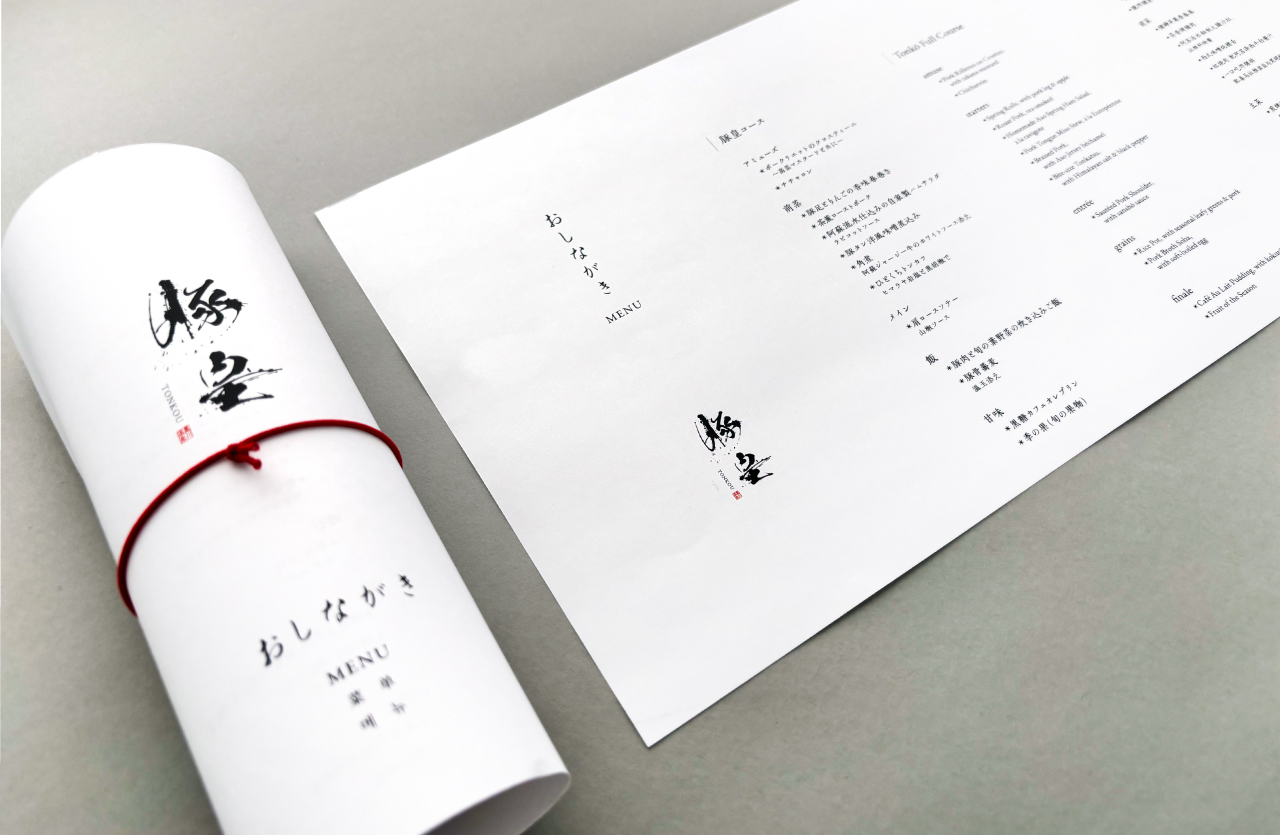 豚皇
TONKOU
おしながき
MENU
菜单
메뉴
おしながき
MENU
豚皇
TONKOU
豚皇コース
アミューズ
*ポークリエットのクロスティーニ
*チチャロン
前菜
*豚足とりんごの香味春巻き
*茶薫ローストポーク
*阿蘇流水仕込みの自家製ハムサラダ
ラビゴットソース
*豚タン洋風味噌煮込み
*角煮
阿蘇ジャージー牛のホワイトソース添え
*ひとくちトンカツ
ヒマラヤ岩塩と黒胡椒で
メイン
*肩ロースソテー
山椒ソース
飯
*豚肉と旬の葉野菜の炊き込みご飯
*豚骨蕎麦
温玉添え
甘味
*黒糖カフェオレプリン
*季の果(旬の果物)
Tonkō Full Course
amuse
*Pork Rillettes on Crostini,
*Chicharrón
starters
*Spring Rolls, with pork leg & apple
*Roast Pork, tea-smoked
*Homemade Aso Spring Ham Salad,
à la ravigote
*Pork Tongue Miso Stew, à la Européenne
*Braised Pork,
with Aso Jersey béchamel
*Bite-size Tonkatsu,
with Himalayan salt & black pepper
entrée
*Sautéed Pork Shoulder,
with sanshō sauce
grains
*Rice Pot, with seasonal leafy greens & pork
*Pork Broth Soba,
with soft-boiled egg
finale
*Café Au Lait Pudding, with kokuto
*Fruit of the Season